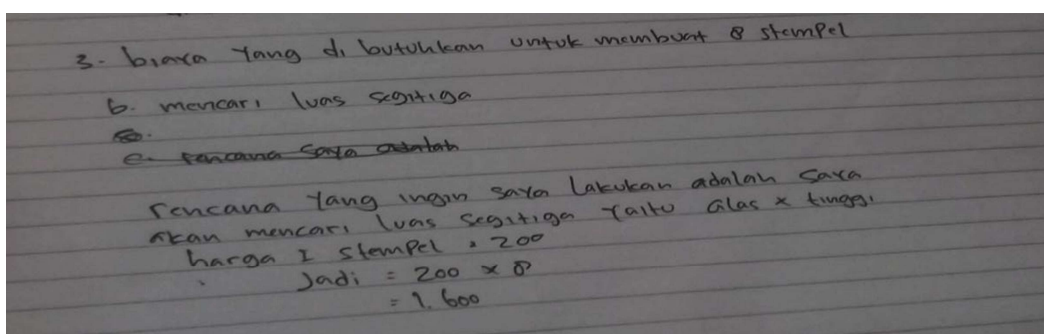 3. biaya yang di butuhkan untuk membuat 8 stempel
b. mencari luas segitiga
c. rencana saya adalah
rencana yang ingin saya lakukan adalah saya
akan mencari luas segitiga yaitu alas x tinggi
harga 1 stempel = 200
Jadi = 200 x 8
= 1.600